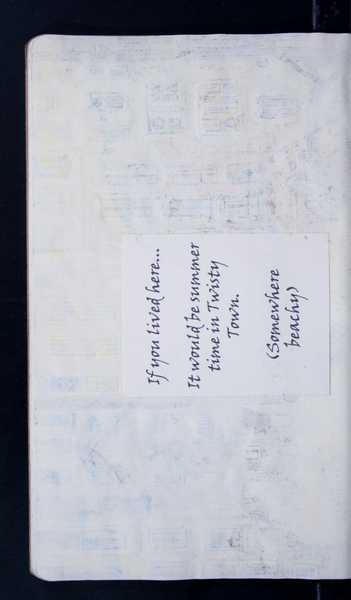 If you lived here...
It would be summer
time in Twisty
Town.
(Somewhere
beachy)